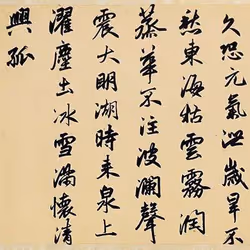 久恐元氣泄歲旱不
愁東海枯雲霧潤
蒸華不注波瀾聲
震大明湖時來泉上
濯塵土冰雪滿懷清
興孤